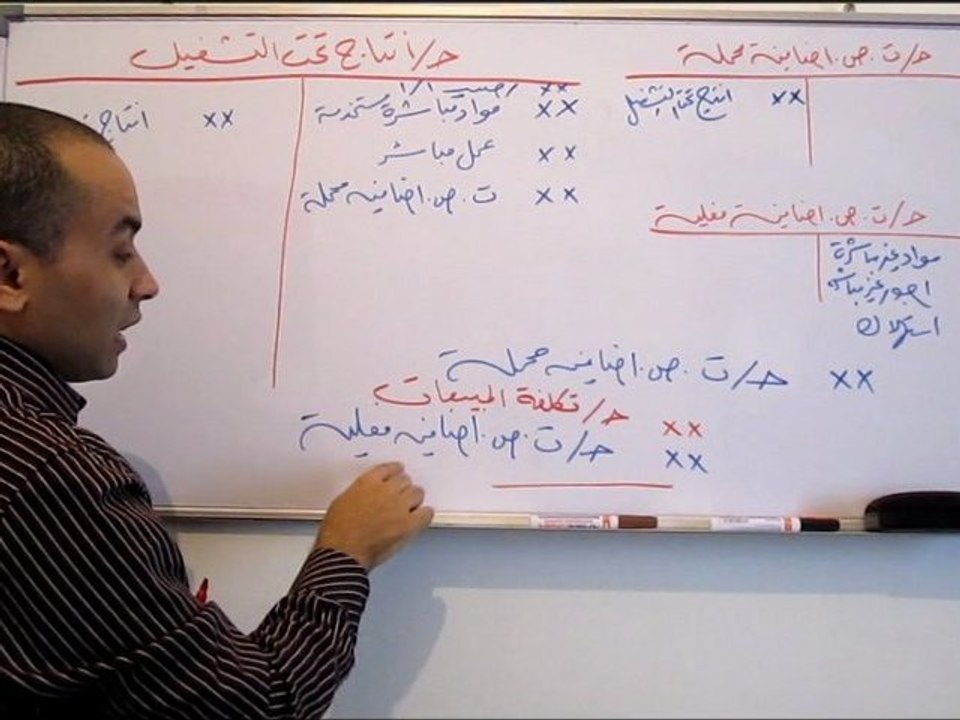 ح/ ت . ص . اضافية محملة
xx انتاج تحت التشغيل
ح/ ت . ص . اضافية فعلية
مواد غير مباشرة
اجور غير مباشرة
استهلاك
ح/ انتاج تحت التشغيل
xx
xx مواد مباشرة مستخدمة
xx عمل مباشر
xx ت . ص . اضافية محملة
xx انتاج
xx ح/ ت . ص . اضافية محملة
xx ح/ تكلفة المبيعات
xx ح/ ت . ص . اضافية فعلية